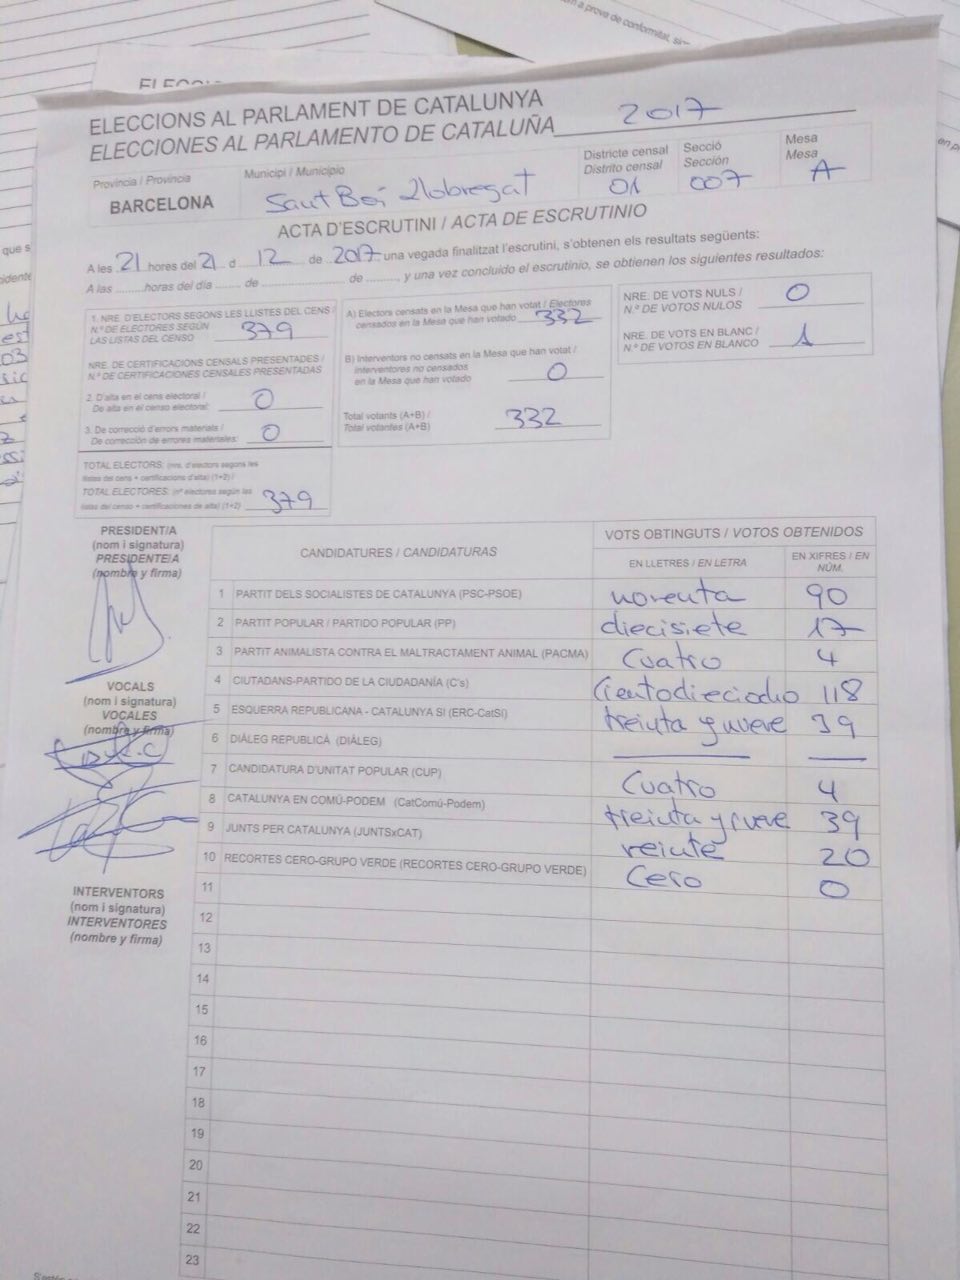 ELECCIO
ELECCIONS AL PARLAMENT DE CATALUNYA
ELECCIONES AL PARLAMENTO DE CATALUÑA 2017
Provincia / Provincia
BARCELONA
Municipi / Municipio
Sant Boi Llobregat
Districte censal
Distrito censal
01
Secció
Sección
007
Mesa
Mesa
A
ACTA D'ESCRUTINI / ACTA DE ESCRUTINIO
A les 21 hores del 21 d 12 de 2017 una vegada finalitzat l'escrutini, s'obtenen els resultats següents:
A las ........horas del día ..... de ........................ de ........, y una vez concluido el escrutinio, se obtienen los siguientes resultados:
1. NRE. D'ELECTORS SEGONS LES LLISTES DEL CENS /
N.º DE ELECTORES SEGÚN
LAS LISTAS DEL CENSO 379
NRE. DE CERTIFICACIONS CENSALS PRESENTADES /
N.º DE CERTIFICACIONES CENSALES PRESENTADAS
2. D'alta en el cens electoral /
De alta en el censo electoral: 0
3. De correcció d'errors materials /
De corrección de errores materiales: 0
TOTAL ELECTORS: (nre. d'electors segons les
llistes del cens + certificacions d'alta) (1+2) /
TOTAL ELECTORES: (nº electores según las
listas del censo + certificaciones de alta) (1+2) 379
A) Electors censats en la Mesa que han votat / Electores
censados en la Mesa que han votado 332
B) Interventors no censats en la Mesa que han votat /
interventores no censados
en la Mesa que han votado 0
Total votants (A+B) /
Total votantes (A+B) 332
NRE. DE VOTS NULS /
N.º DE VOTOS NULOS 0
NRE. DE VOTS EN BLANC /
N.º DE VOTOS EN BLANCO 1
PRESIDENT/A
(nom i signatura)
PRESIDENTE/A
(nombre y firma)
VOCALS
(nom i signatura)
VOCALES
(nombre y firma)
INTERVENTORS
(nom i signatura)
INTERVENTORES
(nombre y firma)
CANDIDATURES / CANDIDATURAS
VOTS OBTINGUTS / VOTOS OBTENIDOS
EN LLETRES / EN LETRA
EN XIFRES / EN
NÚM.
1 PARTIT DELS SOCIALISTES DE CATALUNYA (PSC-PSOE) noventa 90
2 PARTIT POPULAR / PARTIDO POPULAR (PP) diecisiete 17
3 PARTIT ANIMALISTA CONTRA EL MALTRACTAMENT ANIMAL (PACMA) Cuatro 4
4 CIUTADANS-PARTIDO DE LA CIUDADANÍA (C's) Cientodieciocho 118
5 ESQUERRA REPUBLICANA - CATALUNYA SI (ERC-CatSI) treinta y nueve 39
6 DIÀLEG REPUBLICÀ (DIÀLEG)
7 CANDIDATURA D'UNITAT POPULAR (CUP) Cuatro 4
8 CATALUNYA EN COMÚ-PODEM (CatComú-Podem) treinta y nueve 39
9 JUNTS PER CATALUNYA (JUNTSxCAT) veinte 20
10 RECORTES CERO-GRUPO VERDE (RECORTES CERO-GRUPO VERDE) Cero 0
11
12
13
14
15
16
17
18
19
20
21
22
23